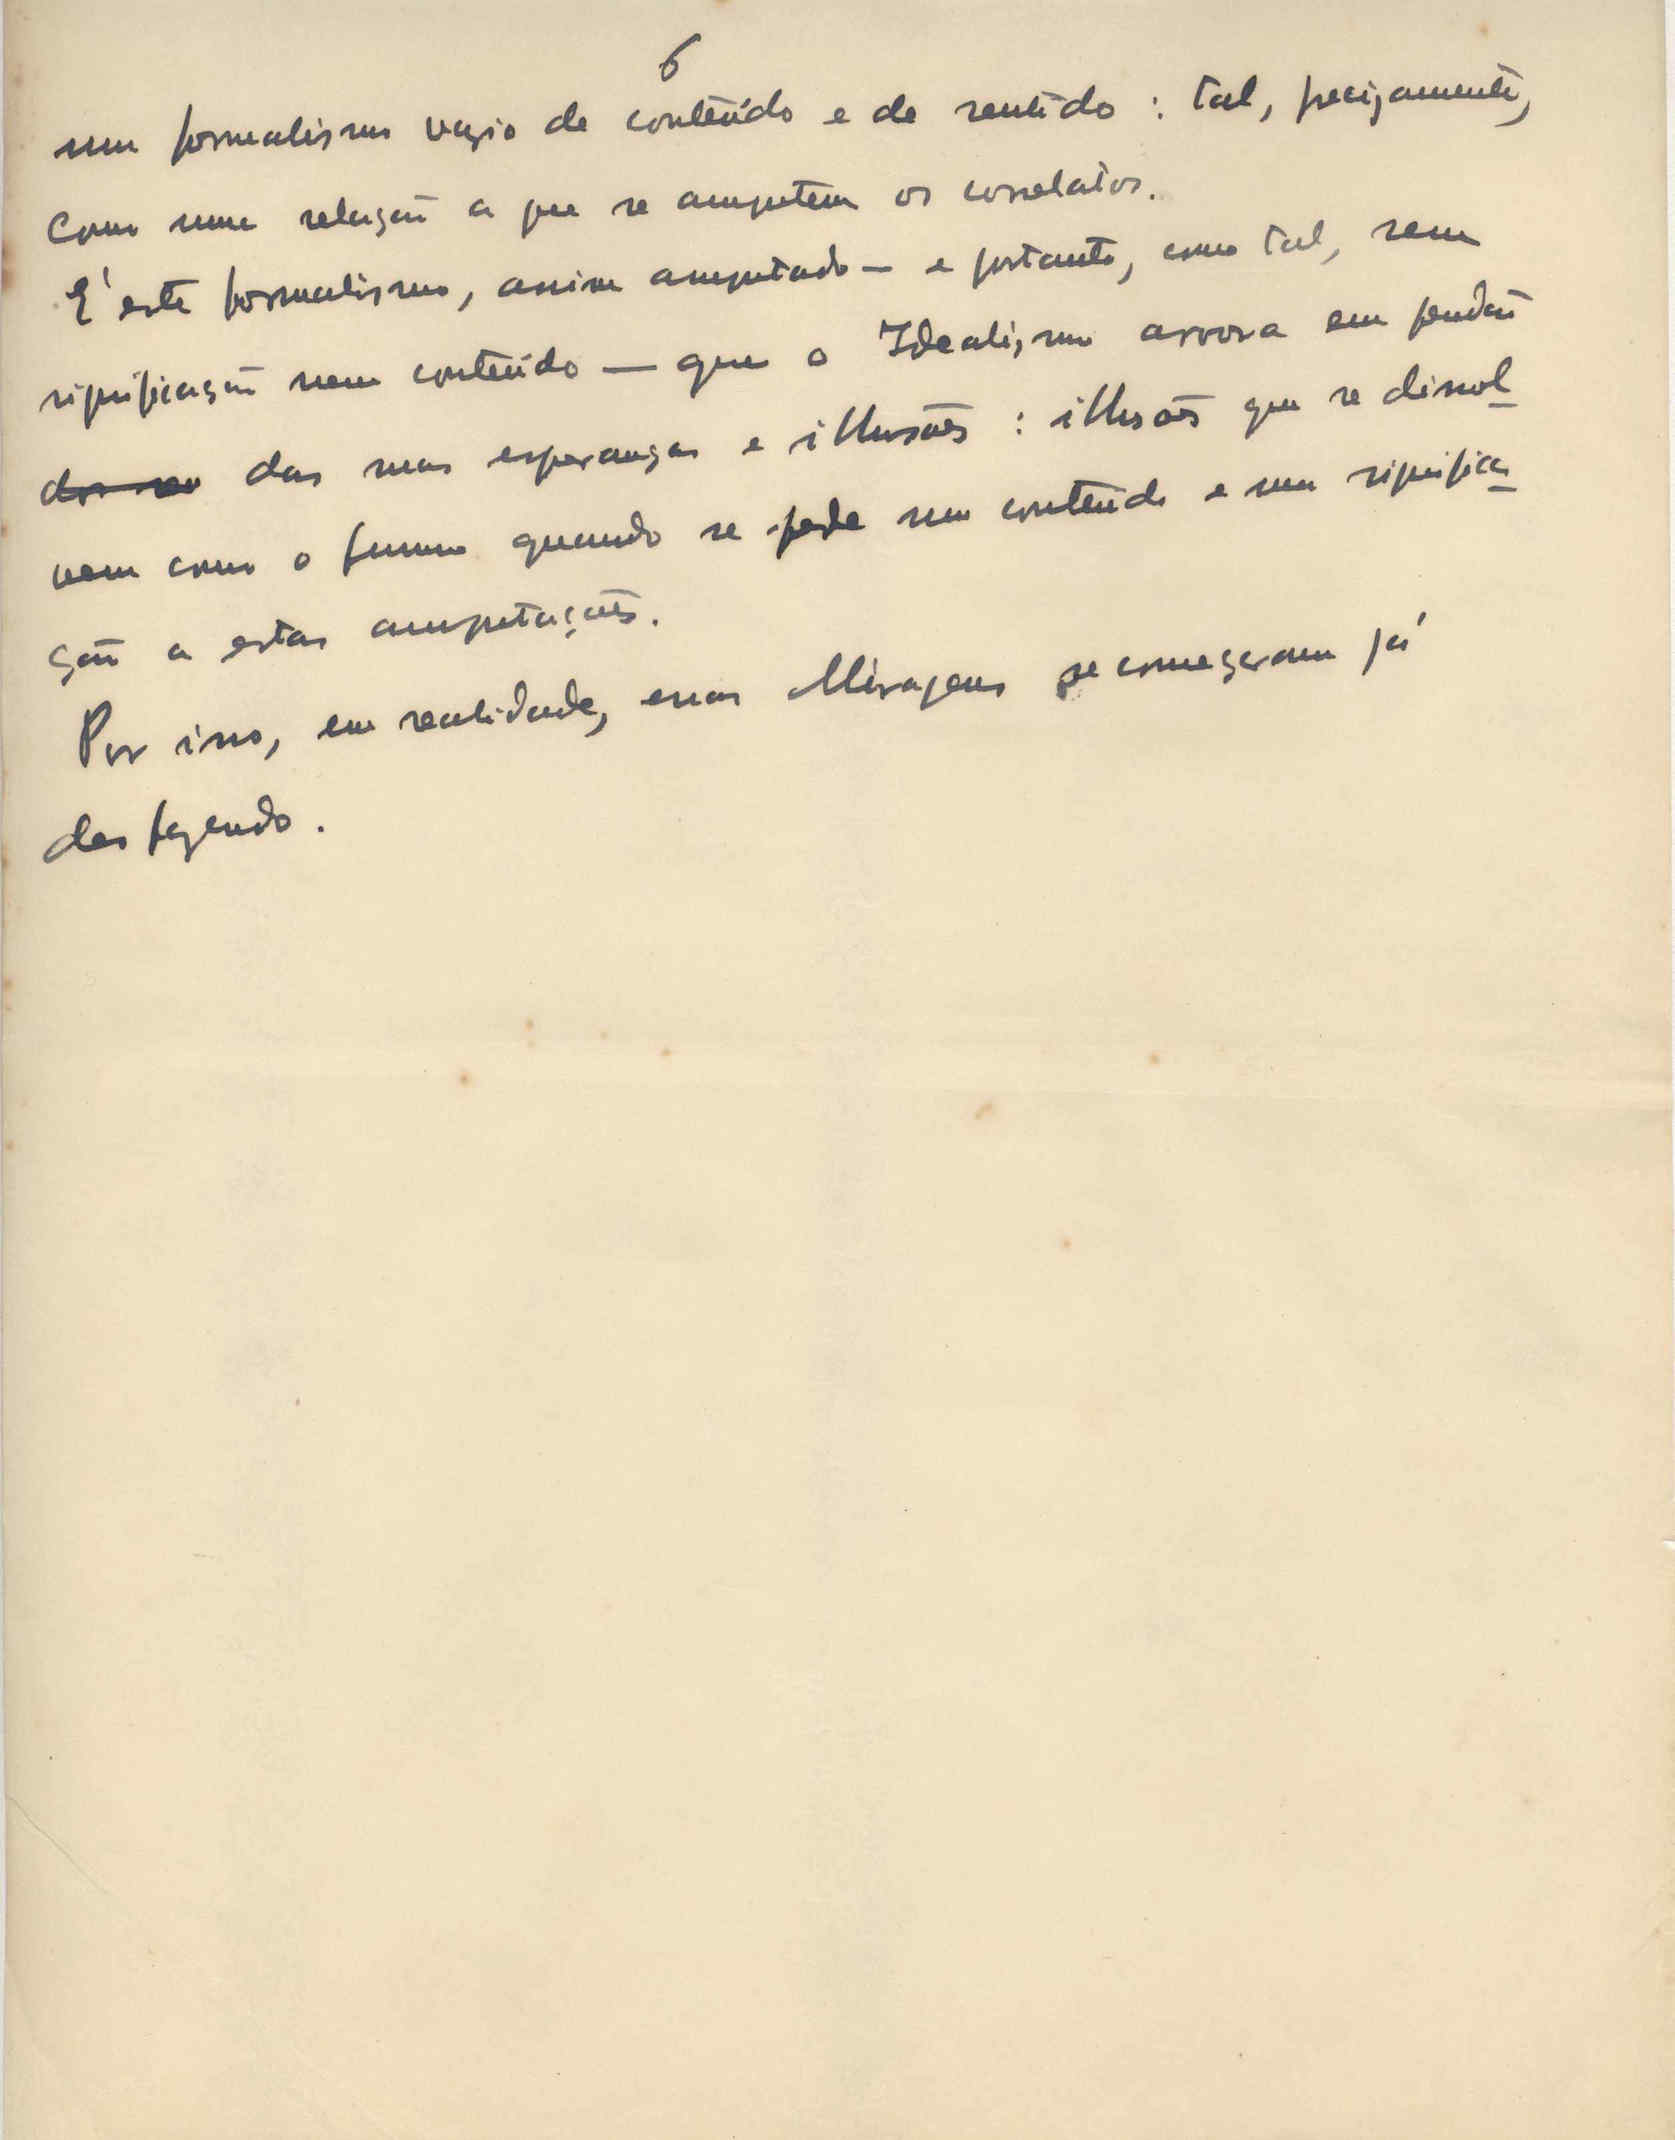 6
um formalismo vazio de conteúdo e de sentido : tal, precizamente,
como uma relação a que se amputem os correlatos.
É este formalismo, assim amputado — e portanto, como tal, sem
significação nem conteúdo — que o Idealismo arvora em pendão
das suas esperanças e illusões : illusões que se dissol-
vem como o fumo quando se pede um conteúdo e uma significa-
ção a estas amputações.
Por isso, em realidade, essas Miragens se começaram já
desfazendo.